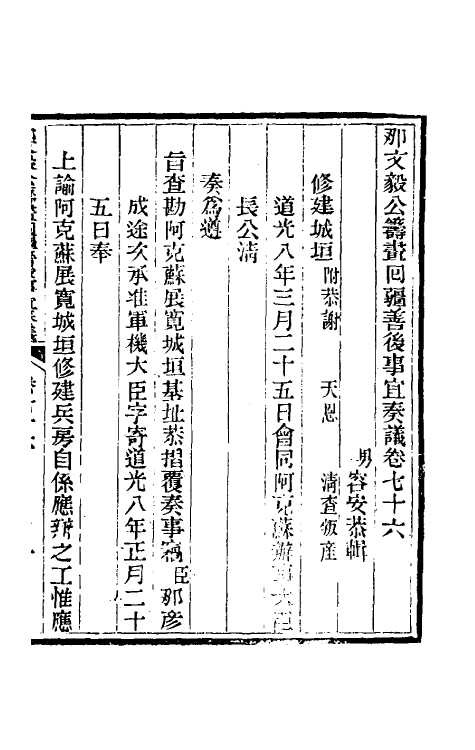 那文毅公籌畫回疆善後事宜奏議卷七十六
男容安恭輯
修建城垣 附恭謝 天恩 清查叛產
道光八年三月二十五日會同阿克蘇辦事大臣
長公清
奏為遵
旨查勘阿克蘇展寬城垣基址恭摺覆奏事竊臣那彥
成途次承准軍機大臣字寄道光八年正月二十
五日奉
上諭阿克蘇展寬城垣修建兵房自係應辦之工惟應